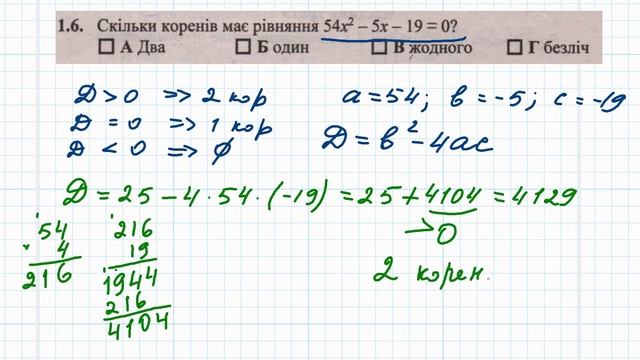 1.6. Скільки коренів має рівняння 54x² – 5x – 19 = 0?
А Два Б один В жодного Г безліч
D > 0 => 2 кор
D = 0 => 1 кор
D < 0 => ∅
a = 54; b = -5; c = -19
D = b² - 4ac
D = 25 - 4 · 54 · (-19) = 25 + 4104 = 4129
> 0
2 корен.
54
× 4
216
216
19
1944
216
4104